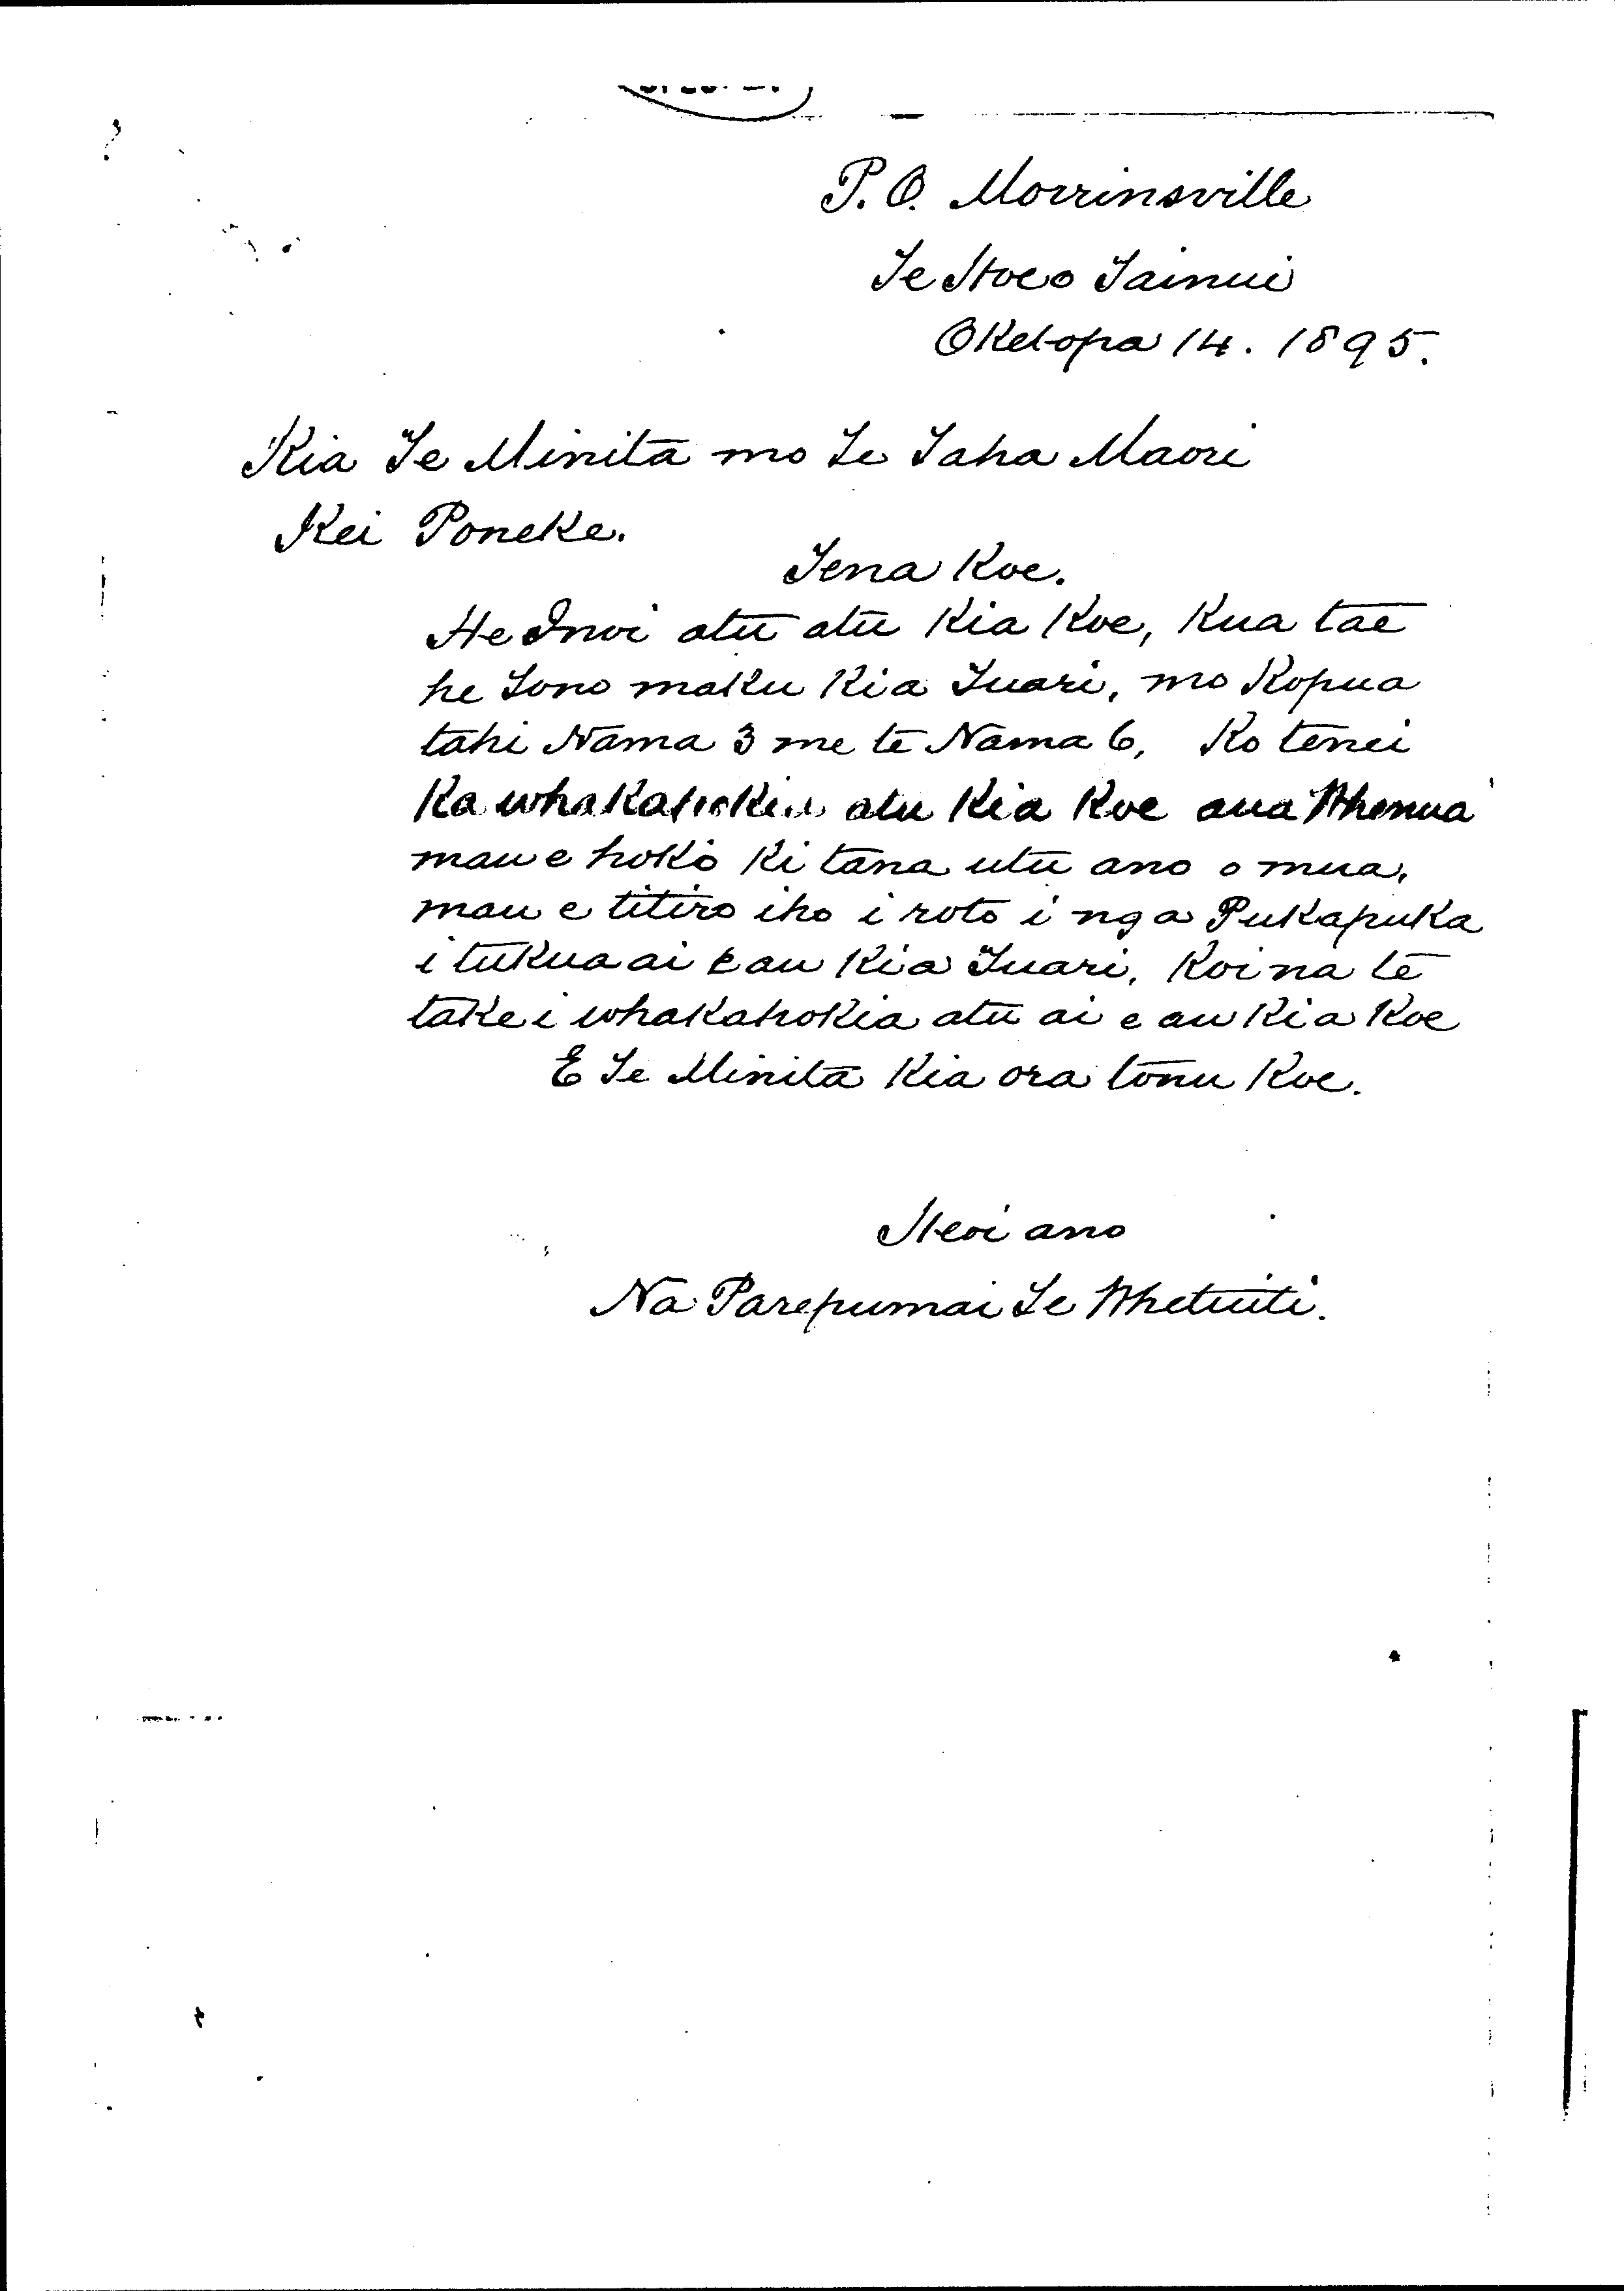 P. O. Morrinsville
Te Hoe o Tainui
Oketopa 14. 1895.
Kia Te Minita mo Te Taha Maori
Kei Poneke.
Tena Koe.
He Inoi atu atu Kia Koe, Kua tae
he Tono maku Kia Tuari, mo Kopua
tahi Nama 3 me te Nama 6, Ko tenei
Ka whakahokia atu Kia Koe aua Whenua
mau e hoko Ki tana utu ano o mua,
mau e titiro iho i roto i nga Pukapuka
i tukua ai e au Kia Tuari, Koi na te
take i whakahokia atu ai e au Kia Koe
E Te Minita Kia ora tonu Koe.
Heoi ano
Na Parepumai Te Whetuiti.